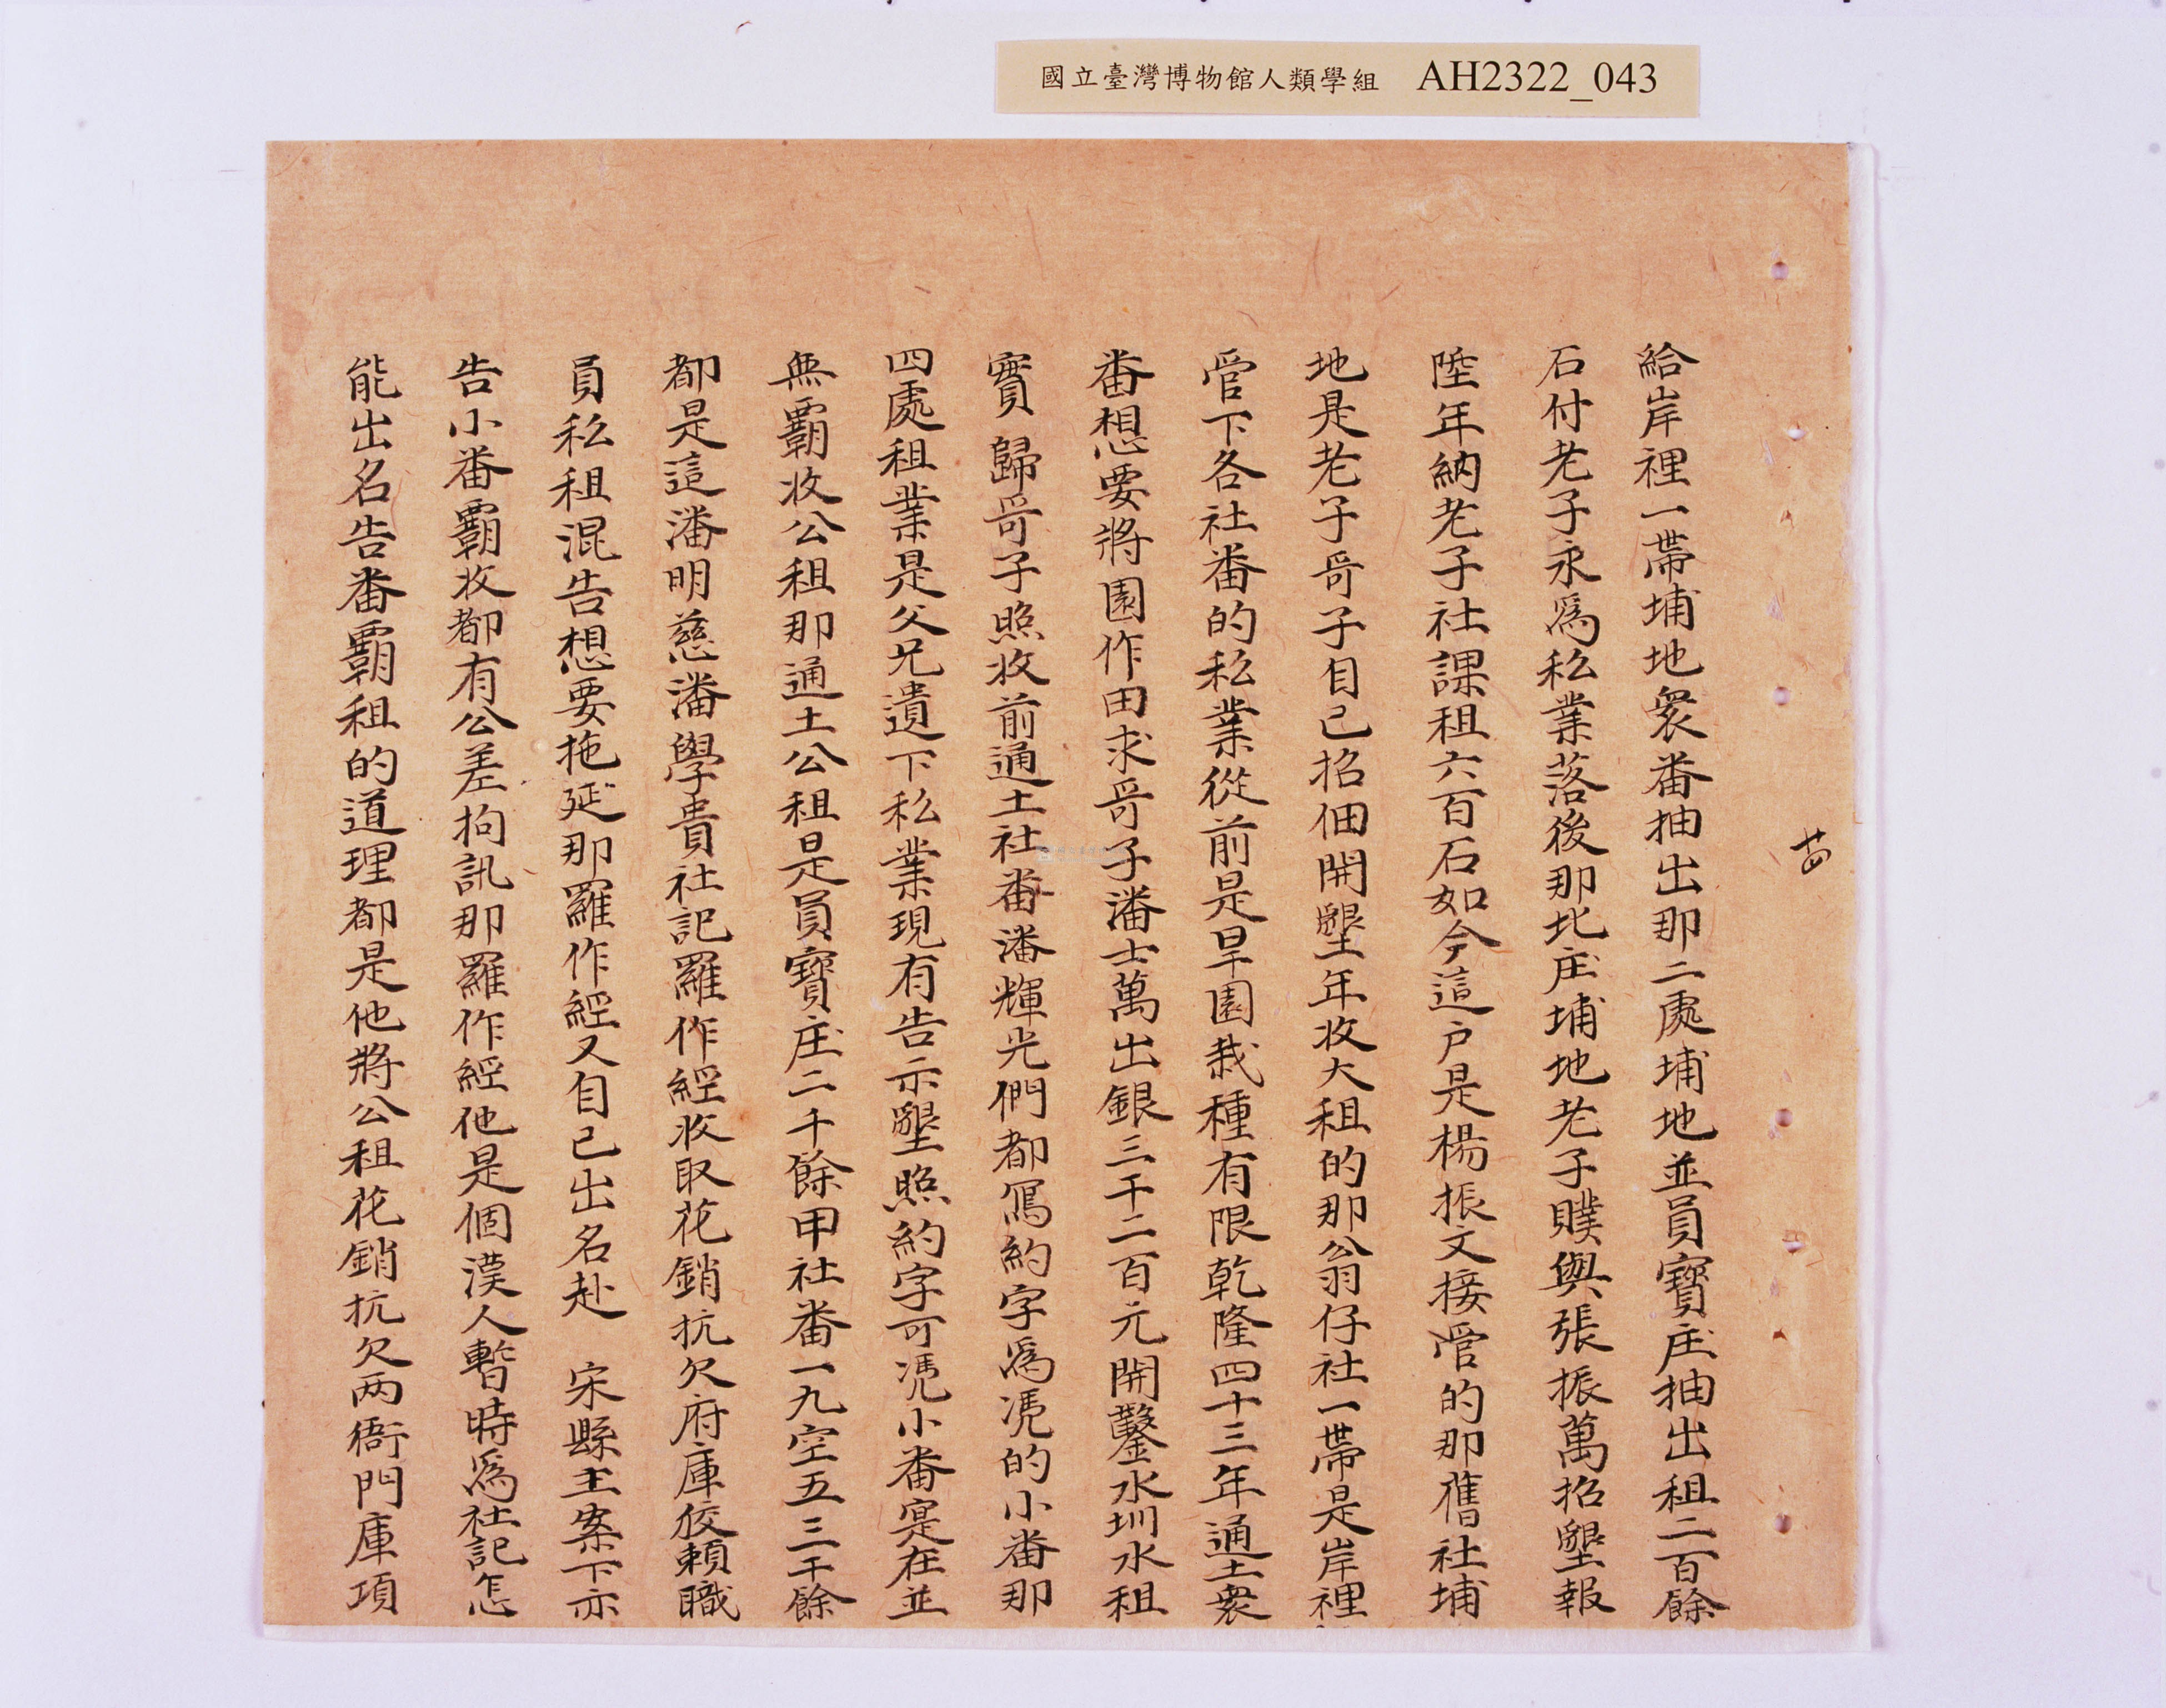 國立臺灣博物館人類學組 AH2322_043
給岸裡一帶埔地衆番抽出那二處埔地並員寶庄抽出租二百餘
石付老子永爲私業落後那北庄埔地老子贌與張振萬招墾報
陞年納老子社課租六百石如今這戶是楊振文接管的那舊社埔
地是老子哥子自己招佃開墾年收大租的那翁仔社一帶是岸裡
管下各社番的私業從前是旱園栽種有限乾隆四十三年通土衆
番想要將園作田求哥子潘士萬出銀三千二百元開鑿水圳水租
實歸哥子照收前通土社番潘輝光們都寫約字爲憑的小番那
四處租業是父兄遺下私業現有告示墾照約字可憑小番寔在並
無霸收公租那通土公租是員寶庄二千餘甲社番一九空五三千餘
都是這潘明慈潘學貴社記羅作經收取花銷抗欠府庫狡賴職
員私租混告想要拖延那羅作經又自己出名赴 宋縣主案下亦
告小番霸收都有公差拘訊那羅作經他是個漢人暫時爲社記怎
能出名告番霸租的道理都是他將公租花銷抗欠两衙門庫項